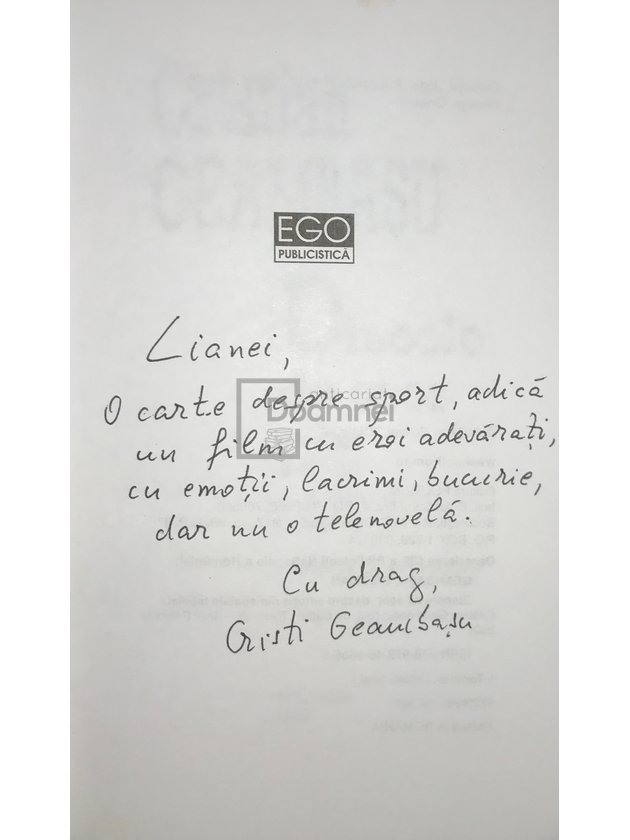 EGO
PUBLICISTICĂ
Lianei,
O carte despre sport, adică
un film cu eroi adevărați,
cu emoții, lacrimi, bucurie,
dar nu o telenovelă.
Cu drag,
Cristi Geambașu
anticariat
Doamnei